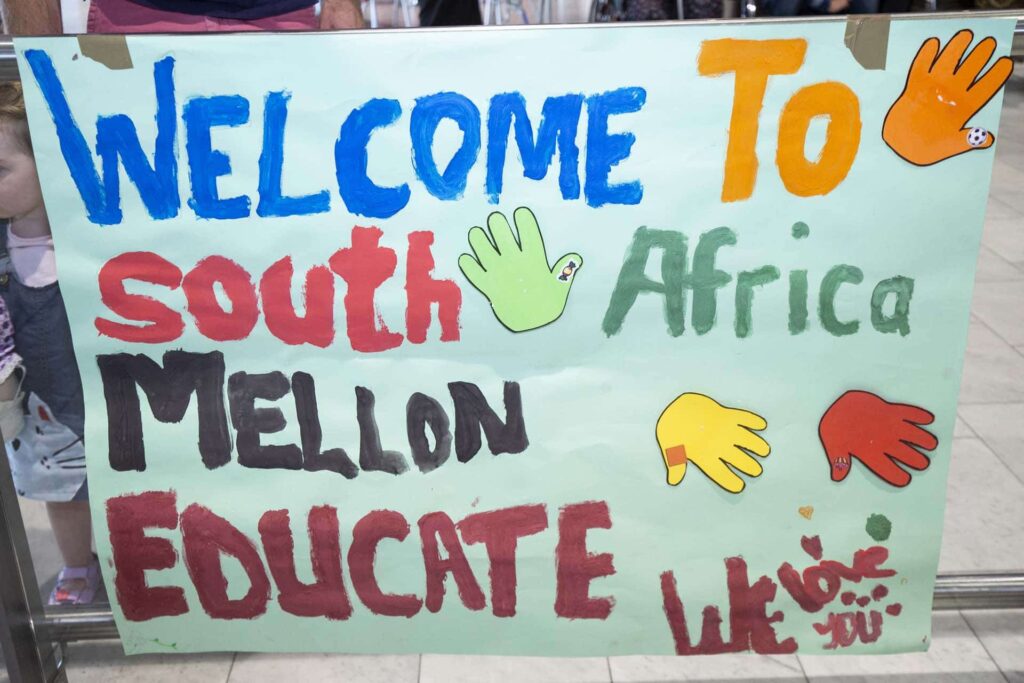 WELCOME TO
south Africa
MELLON
EDUCATE
WE Love
YOU